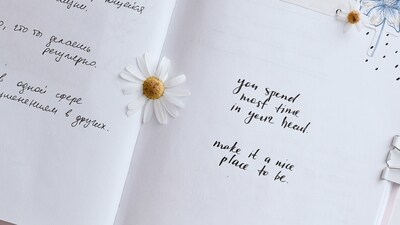 о, что ты делаешь
регулярно.
в одной сфере
в других.
you spend
most time
in your head
make it a nice
place to be.